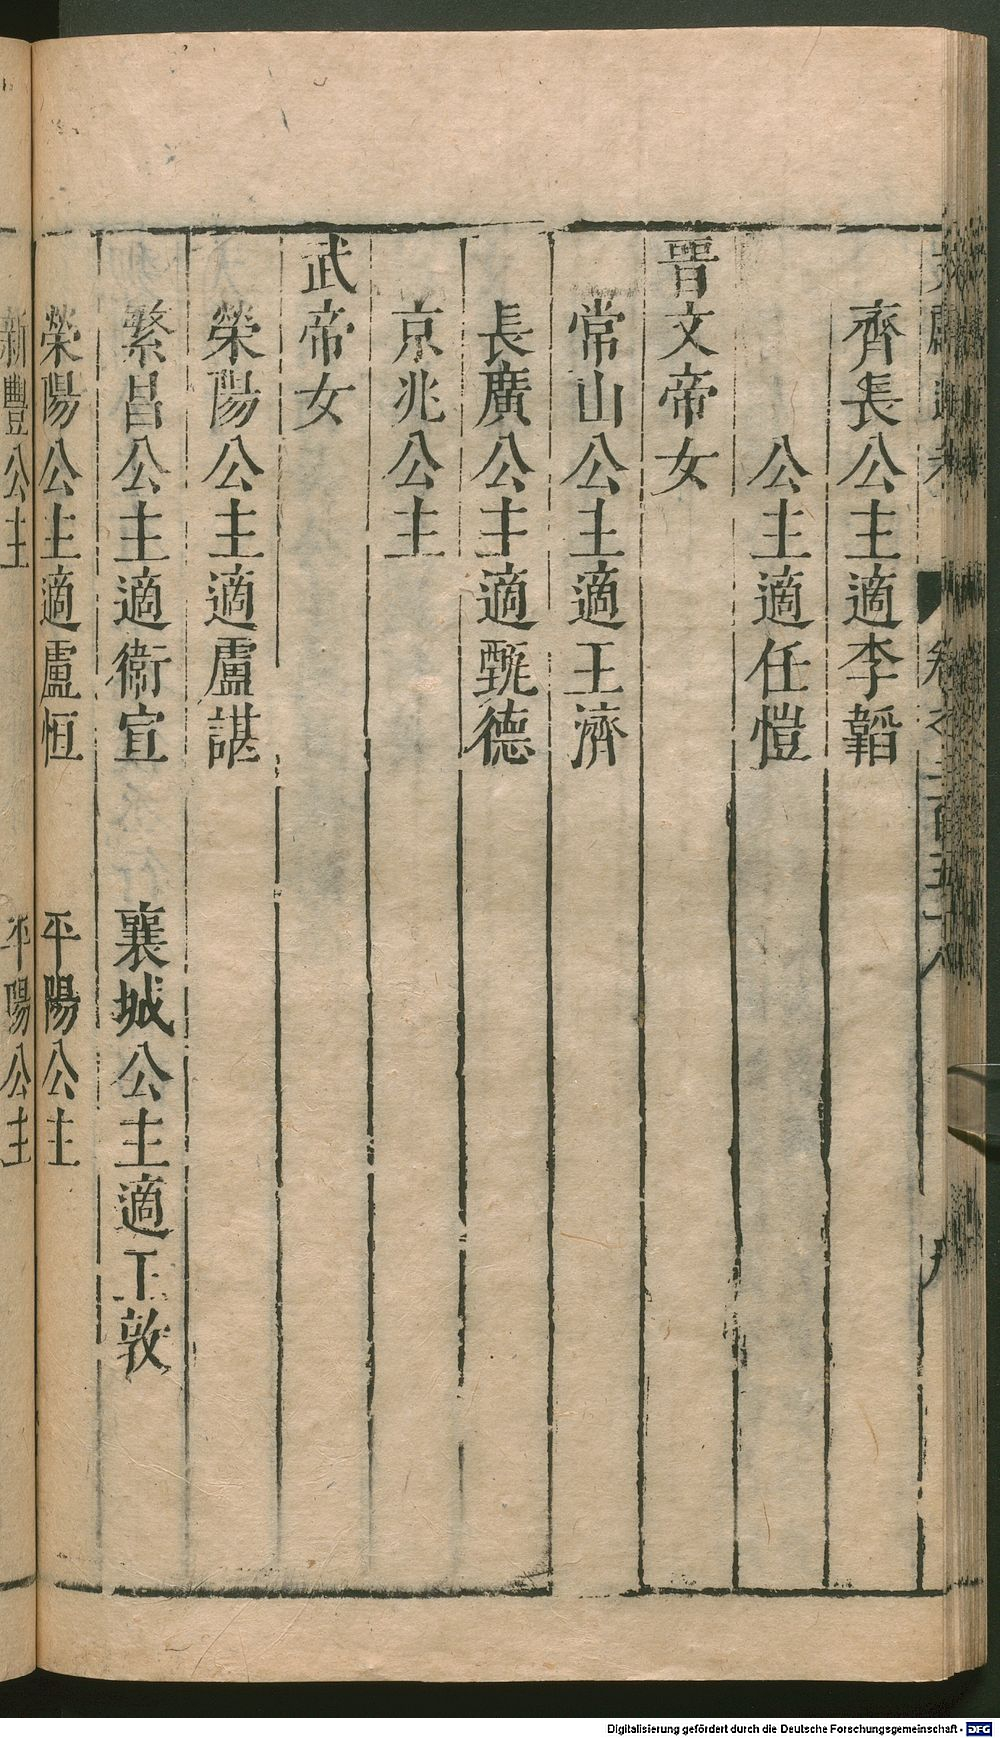 齊長公主適李韜
公主適任愷
晋文帝女
常山公主適王濟
長廣公主適甄德
京兆公主
武帝女
榮陽公主適盧諶
繁昌公主適衛宣 襄城公主適王敦
榮陽公主適盧恒 平陽公主
新豐公主 平陽公主
Digitalisierung gefördert durch die Deutsche Forschungsgemeinschaft - DFG